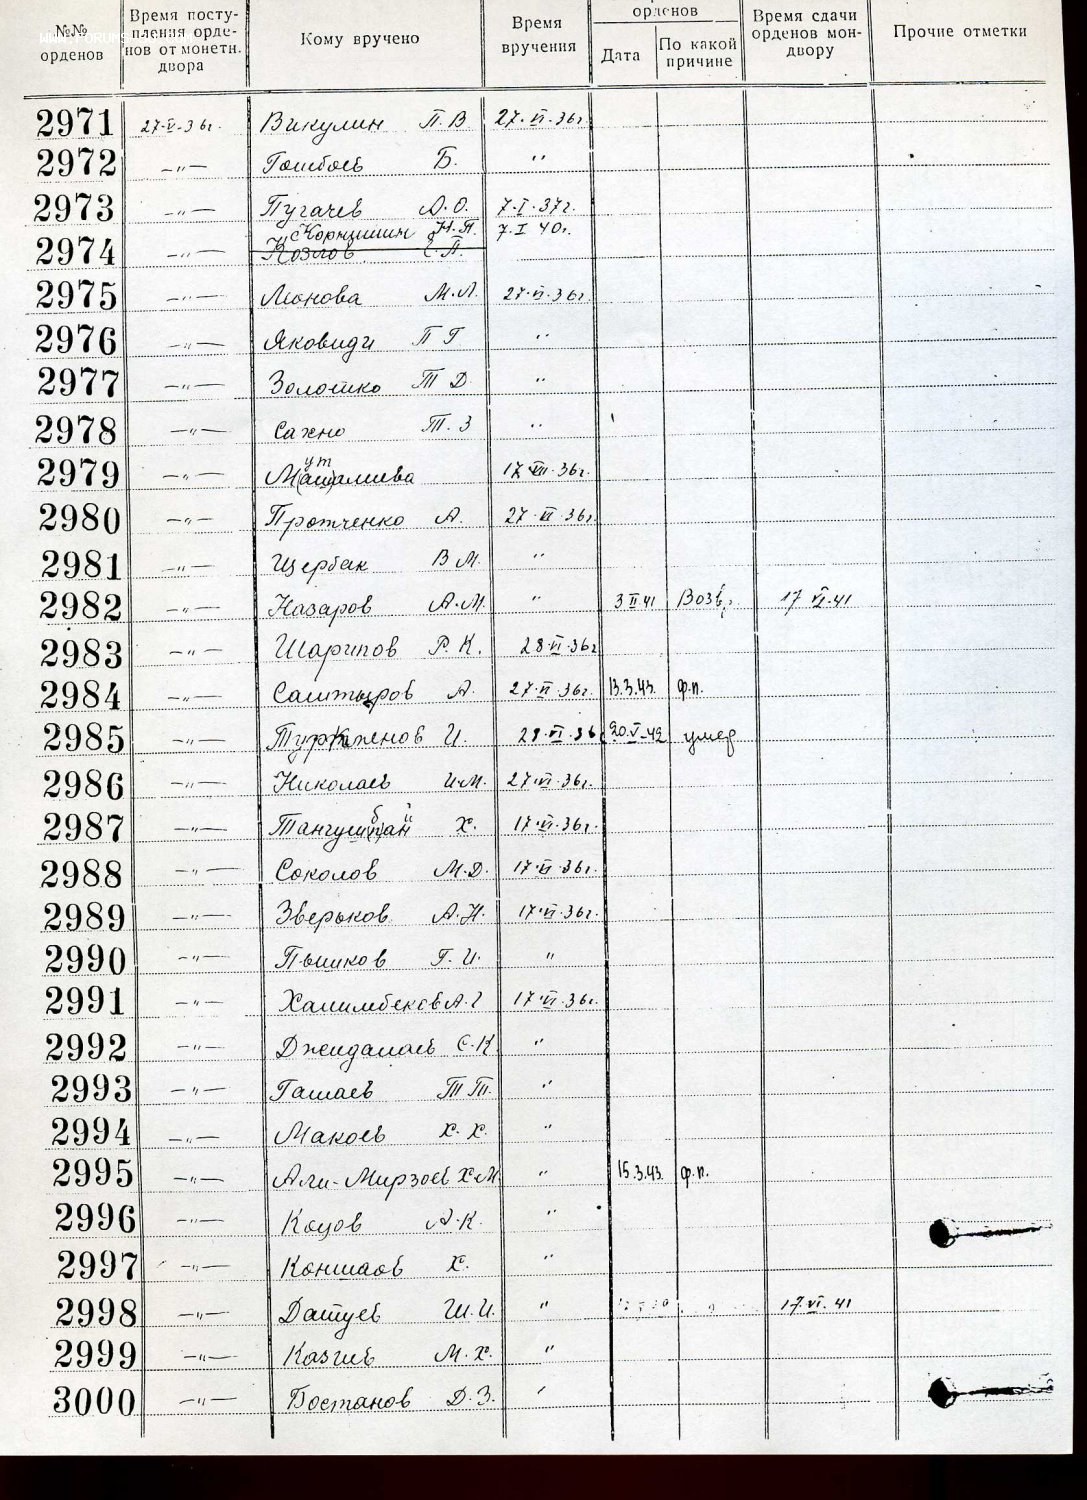 №№ орденов | Время поступления орденов от монетн. двора | Кому вручено | Время вручения | орденов Дата | По какой причине | Время сдачи орденов мондвору | Прочие отметки
2971 27·V·36г. Викулин П.В 27·VI·36г.
2972 —„— Б. „
2973 —„— Пугачев А.О. 7·I·37г.
Корнишин Н.П. 7·I 40г.
2974 —„— Козлов С.П.
2975 —„— М.Л. 27·VI·36г.
2976 —„— Яковиди П Г „
2977 —„— Золотко Т Д „
2978 —„— Сахно Т.З „
ут
2979 —„— 17 36г.
2980 —„— Протченко А. 27·VI·36г.
2981 —„— Щербак В М. „
2982 —„— Назаров А.М. „ 3 II 41 Возвр. 17 VI·41
2983 —„— Шарипов Р.К. 28·VI·36г
2984 —„— А. 27·VI·36г. 13.3.43. ф.п.
2985 —„— И. VI·36 20.V-42 умер
2986 —„— Николаев И·М. 27·VI·36г.
2987 —„— Х. 17·VI·36г.
2988 —„— Соколов М.Д. 17·VI·36г.
2989 —„— Зверьков А.Н. 17·VI·36г.
2990 —„— Пышков Г.И. „
2991 —„— Халимбеков А.Г 17·VI·36г.
2992 —„— С·К. „
2993 —„— Гашаев Т Т. „
2994 —„— Макоев Х. Х. „
2995 —„— Али-Мирзоев Х М. „ 15.3.43. ф.п.
2996 —„— Коцов А·К. „
2997 —„— Коншаов Х. „
2998 —„— Датуев Ш.И. „ 17.VI. 41
2999 —„— Казиев М.Х. „
3000 —„— Бостанов Д.З. „